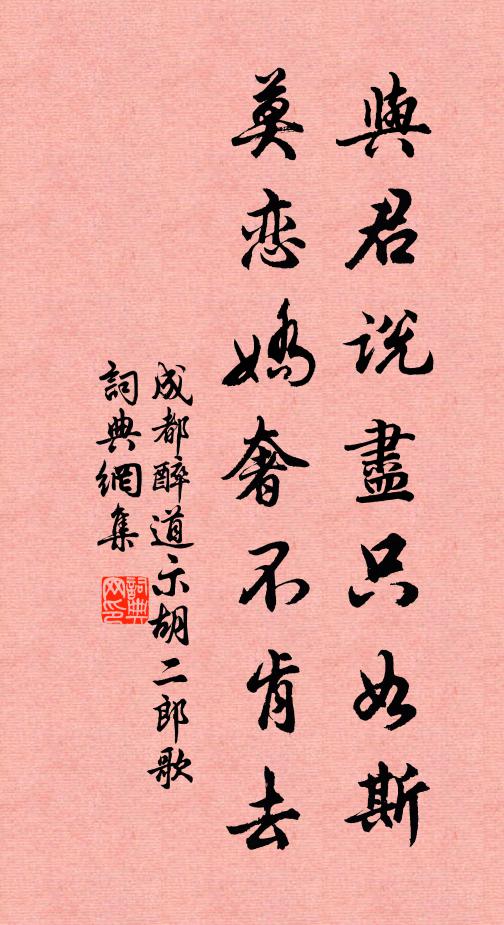 與君說盡只如斯
莫恋嬌奢不肯去
成都醉道示胡二郎歌
詞典網集
詞典網印